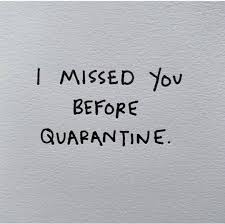 I MISSED YOU
BEFORE
QUARANTINE.